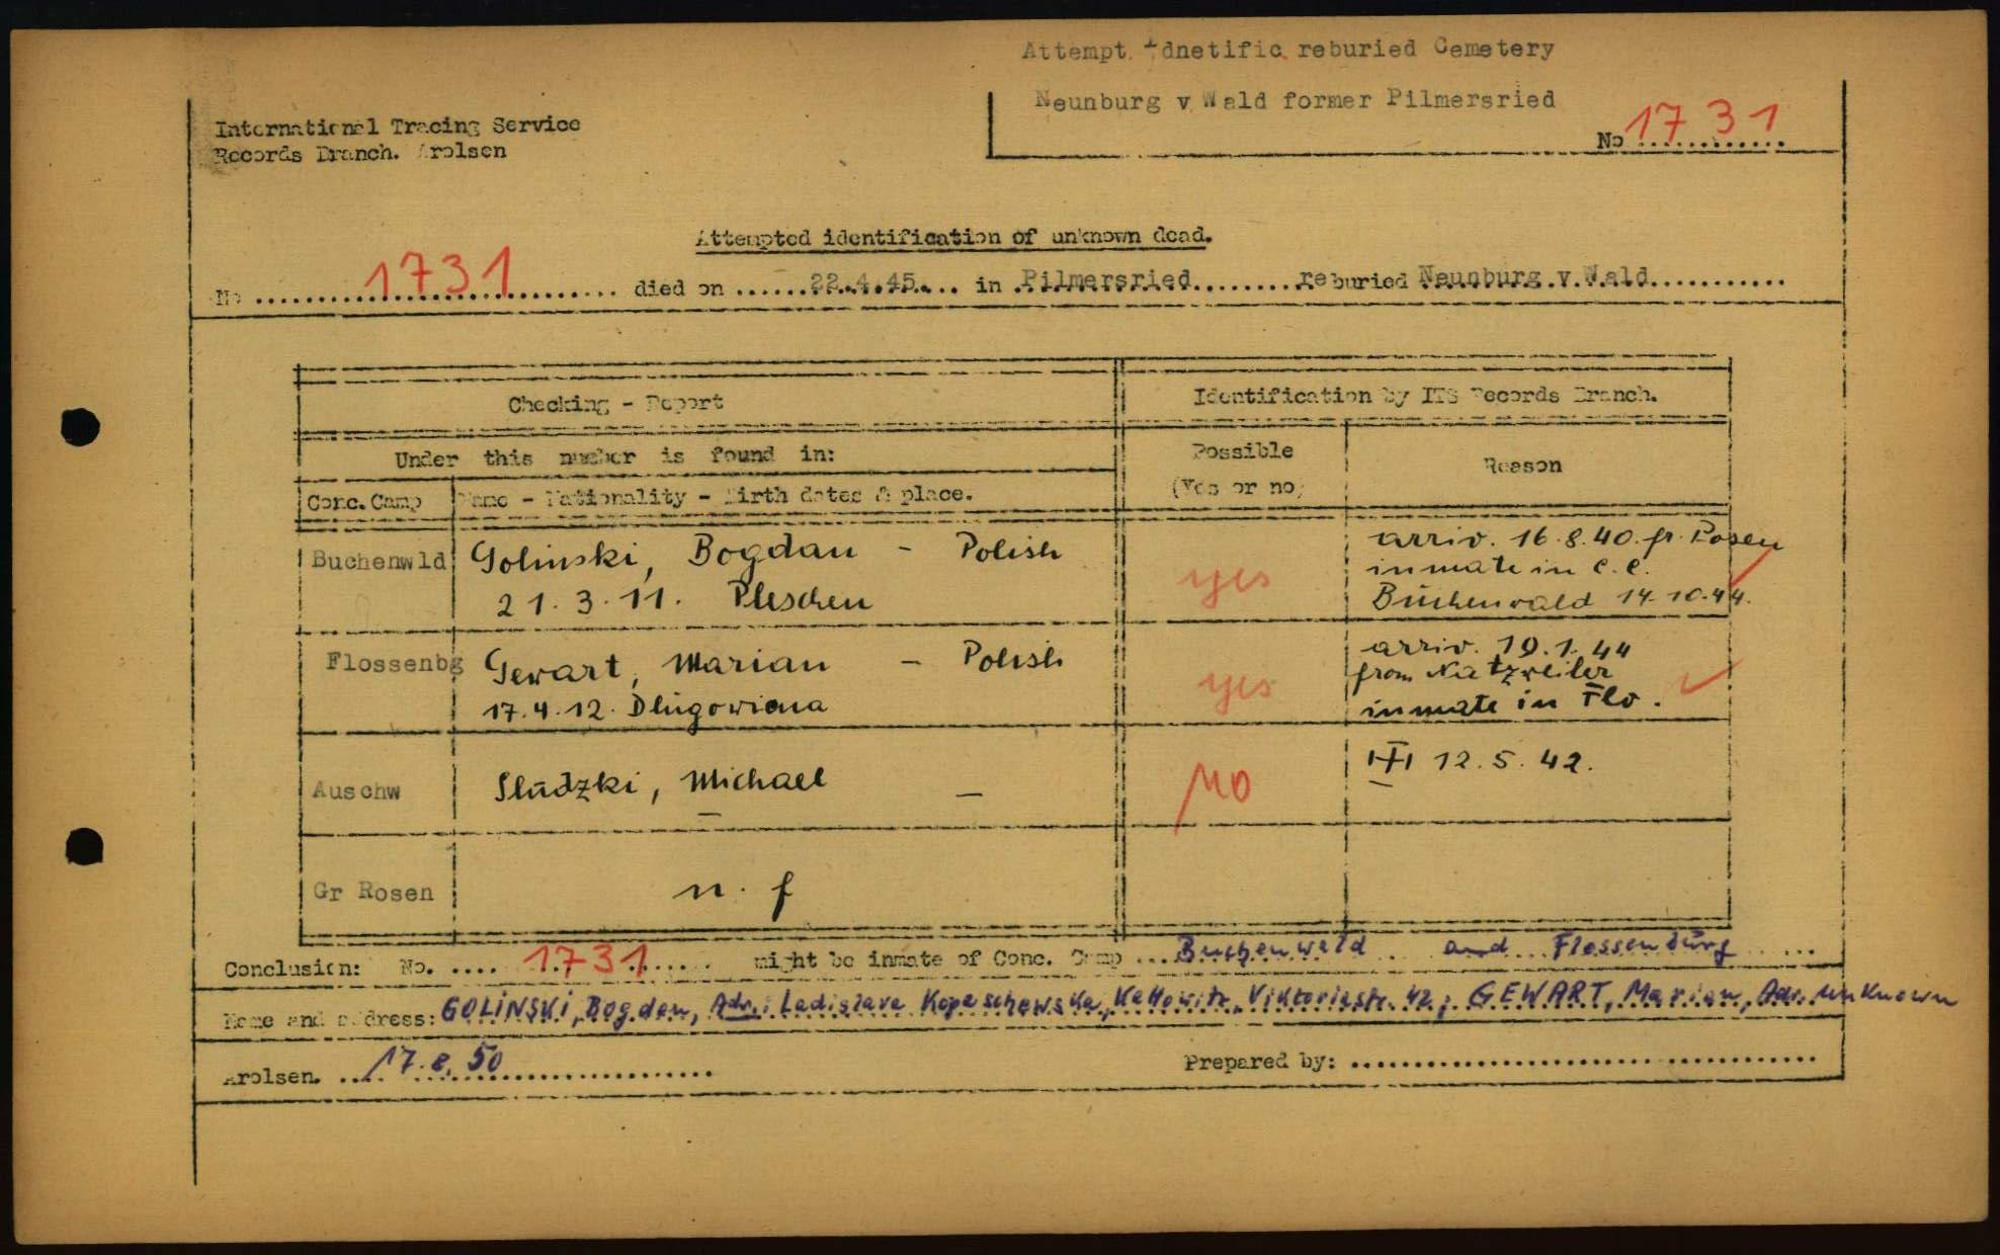 Attempt. Idnetific. reburied Cemetery
Neunburg v. Wald former Pilmersried
International Tracing Service
Records Branch. Arolsen
No 1731
Attempted identification of unknown dead.
No 1731 died on 22.4.45. in Pilmersried reburied Neunburg v. Wald
Checking - Report
Identification by ITS Records Branch.
Under this number is found in:
Possible
(Yes or no)
Reason
Conc. Camp
Name - Nationality - Birth dates & place.
Buchenwld
Golinski, Bogdan - Polish
21.3.11. Pleschen
yes
arriv. 16.8.40. fr. Posen
inmate in C.C.
Buchenwald 14.10.44.
Flossenbg
Gewart, Marian - Polish
17.4.12.
yes
arriv. 19.1.44
from Natzweiler
inmate in Flo.
Auschw
Sludzki, Michael -
no
12.5.42.
Gr Rosen
n. f
Conclusion: No. 1731 might be inmate of Conc. Camp Buchenwald and Flossenbürg
Name and address: GOLINSKI, Bogdan, Adr.: Ladislava Kopaschewska, Kattowitz, Viktoriastr. 42; GEWART, Marian, Adr. unknown
Arolsen. 17.8.50
Prepared by: